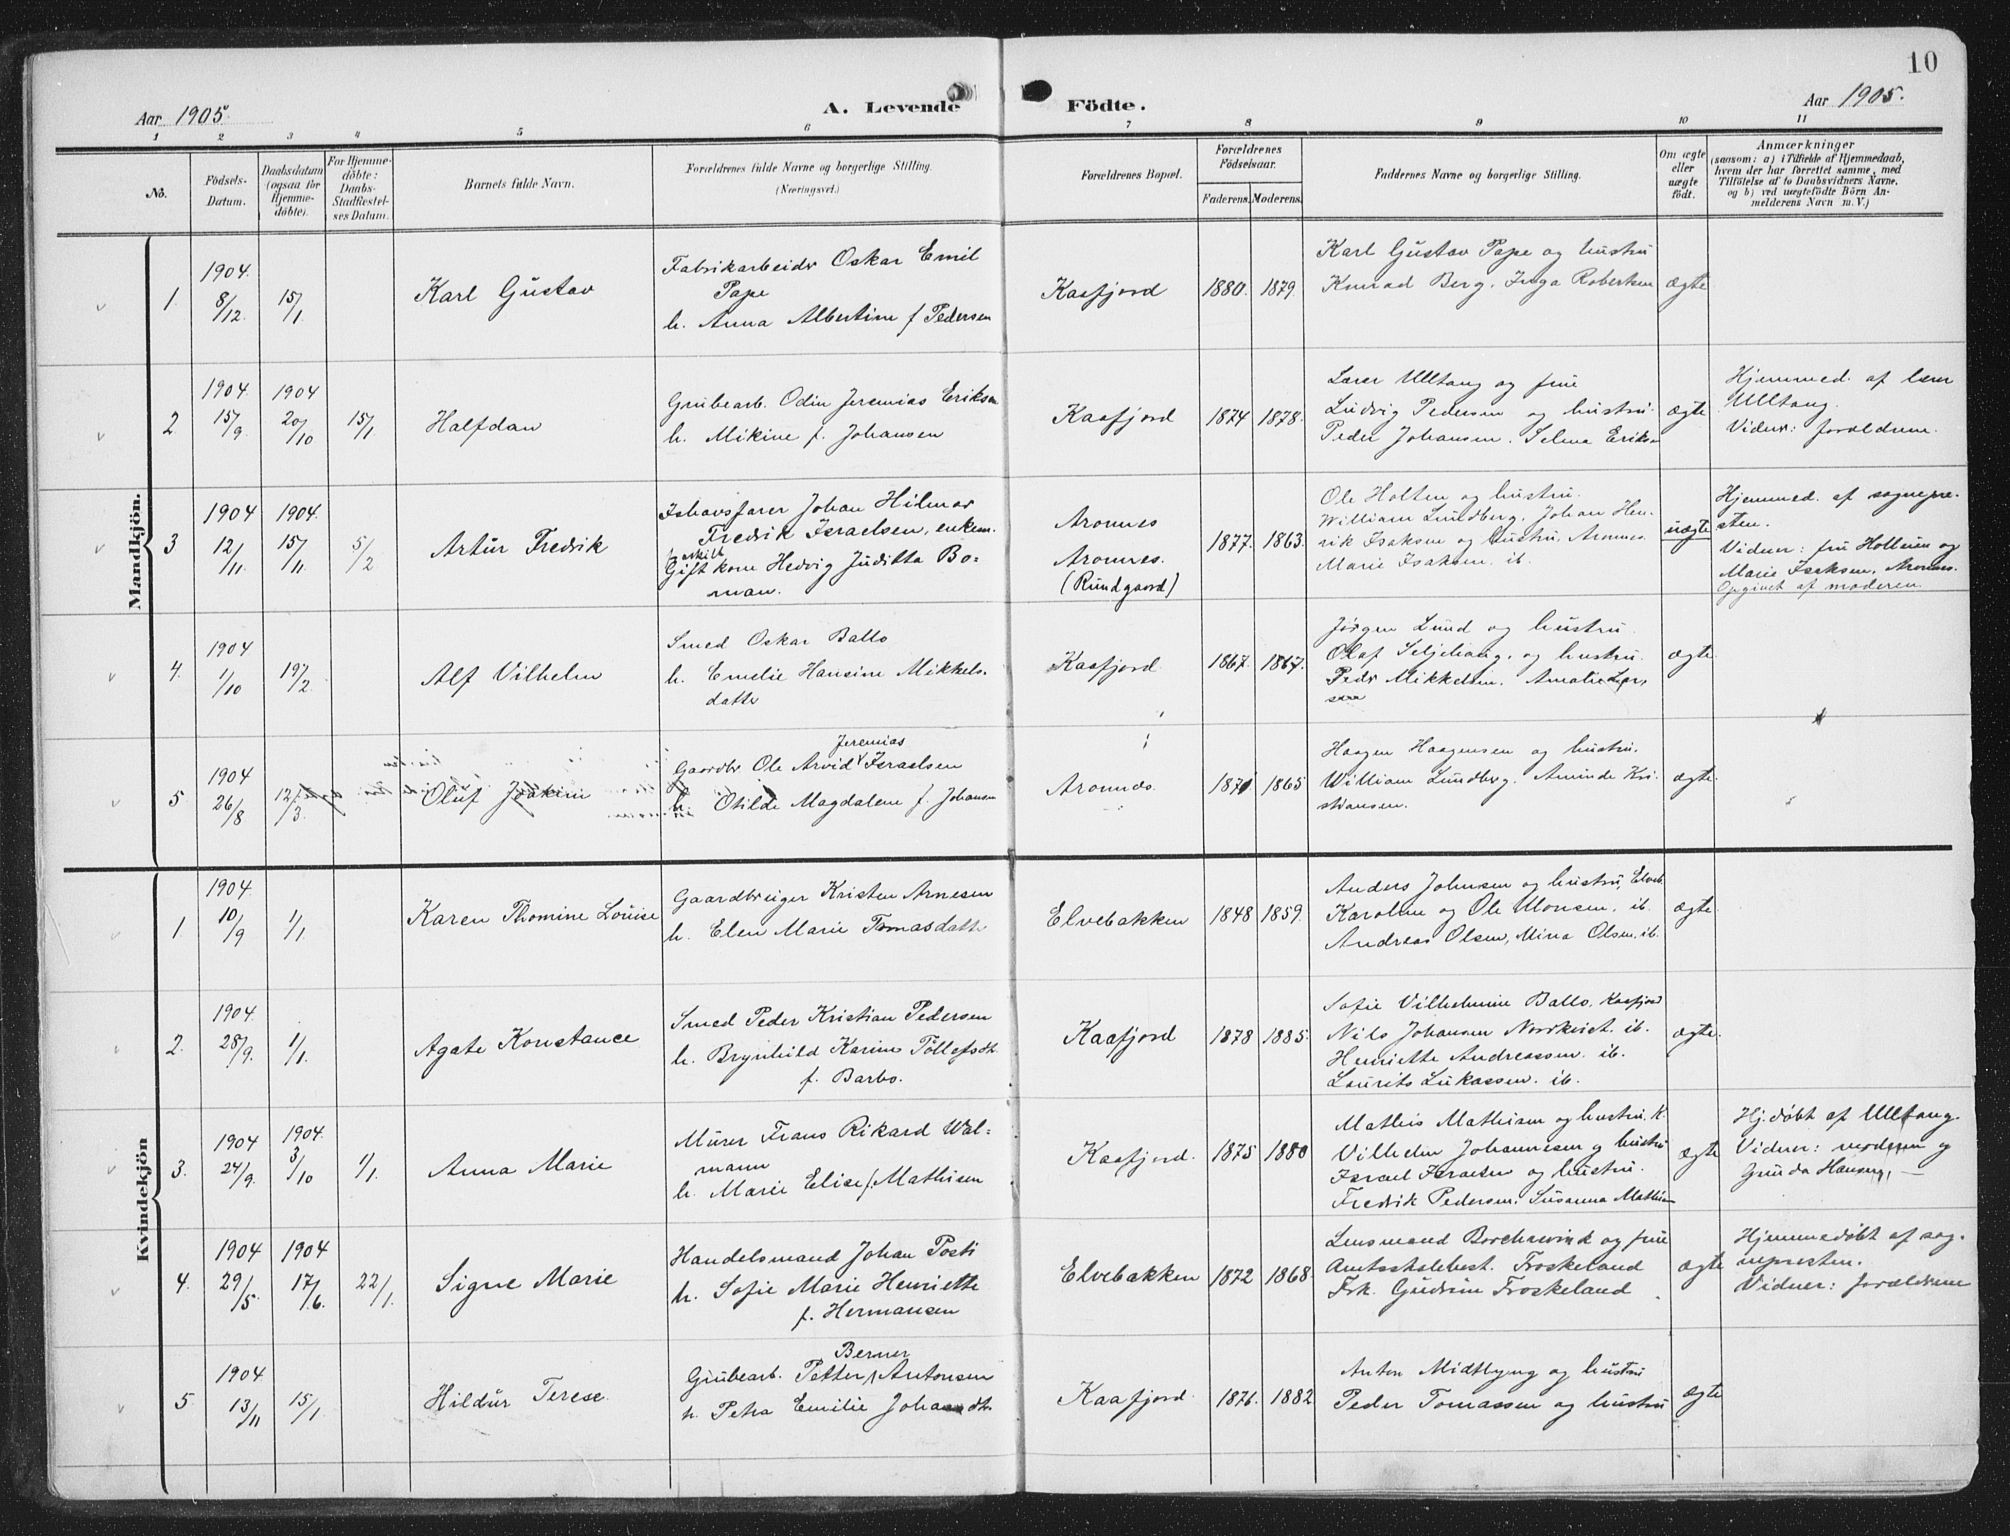 10
Aar 1905
A. Levende Födte.
Aar 1905.
1 2 3 4 5 6 7 8 9 10 11
No.
Födsels-Datum.
Daabsdatum (ogsaa for Hjemme-döbte).
For Hjemme-döbte: Daabs-Stadfæstel-ses Datum.
Barnets fulde Navn.
Forældrenes fulde Navne og borgerlige Stilling.
(Næringsvei.)
Forældrenes Bopæl.
Forældrenes Födselsaar.
Faderens. Moderens.
Faddernes Navne og borgerlige Stilling.
Om ægte eller uægte födt.
Anmærkninger
(saasom: a) i Tilfælde af Hjemmedaab,
hvem der har forrettet samme, med
Tilföielse af to Daabsvidners Navne,
og b) ved uægtefödte Börn An-
melderens Navn m. V.)
Mandkjön.
1 1904. 8/12. 15/1. Karl Gustav
Fabrikarbeider Oskar Emil
Pape
h. Anna Albertine f Pedersen
Kaafjord 1880. 1879.
Karl Gustav Pape og hustru
Konrad Berg. Inga Robertsen
ægte
2 1904. 15/9 1904 20/10 15/1 Halfdan
Grubearb. Odin Jeremias Eriksen
h. Mikine f. Johansen
Kaafjord 1874 1878.
Lærer Ulltang og frue
Ludvig Pedersen og hustru.
Peder Johansen. Selma Eriksen
ægte
Hjemmed. af lærer
Ulltang.
Vidner: forældrene.
3 1904 12/11. 1904. 15/11. 5/2 Artur Fredrik
Ishavsfarer Johan Hilmar
Fredrik Israelsen, enkem.
fraskilt
Gift kone Hedvig Juditta Bo-
man.
Aronnes
Aronnes.
(Rundgaard)
1877. 1863.
Ole Holten og hustru.
William Lundberg. Johan Hen-
rik Isaksen og hustru, Aronnes.
Marie Isaksen. ib.
uægte
Hjemmed. af sognepre-
sten.
Vidner: fru og
Marie Isaksen, Aronnes.
Opgivet af moderen
4. 1904 1/10 19/2. Alf Vilhelm
Smed Oskar Ballo
h. Emelie Hansine Mikkels-
datter
Kaafjord. 1867. 1867.
Jørgen Lund og hustru.
Olaf Seljehaug, og hustru.
Peder Mikkelsen. Amalie Lar-
sen
ægte
5. 1904 26/8 12/3. Oluf Joakim
Jeremias
Gaardbr Ole Arvid Israelsen
h. Otilde Magdalene f. Johansen
Aronnes. 1871 1865
Haagen Haagensen og hustru.
William Lundberg. Aminde Kri-
stiansen.
ægte
Kvindekjön
1. 1904. 10/9 1/1. Karen Thomine Louise
Gaardbruger Kristen Arnesen
h. Elen Marie Tomasdatter
Elvebakken 1848 1859.
Anders Johnsen og hustru, Elveb.
Karoline og Ole Monsen. ib.
Andreas Olsen, Mina Olsen, ib.
ægte
2. 1904. 28/9. 1/1. Agate Konstance
Smed Peder Kristian Pedersen
h. Brynhild Karine Tollefsdt.
f. Barbo.
Kaafjord 1878 1885.
Sofie Vilhelmine Ballo, Kaafjord
Nils Johansen Nordkvist. ib.
Henriette Andreassen. ib.
Laurits Lukassen. ib.
ægte.
3. 1904 24/9. 1904. 3/10 1/1. Anna Marie
Murer Frans Rikard Wal-
mann
h. Marie Elise f. Mathisen
Kaafjord. 1875 1880
Mathis Mathisen og hustru. K.
Vilhelm Johannesen og hustru
Israel Israelsen og hustru.
Fredrik Pedersen. Susanna Mathisen
ægte
Hj.døbt af Ulltang.
Vidner: moderen og
Gruda Hansen, —
4. 1904 29/5. 1904 17/6. 22/1. Signe Marie
Handelsmand Johan Posti
h. Sofie Marie Henriette
f. Hermansen
Elvebakken 1872 1868.
Lensmand Borchrevink og frue
Amtsskolebest. Froskeland
Frk. Gudrun Froskeland
ægte
Hjemmedøbt af sog-
nepresten.
Vidner: forældrene
5 1904. 13/11 15/1. Hildur Terese.
Berner
Grubearb. Petter Antonsen
h. Petra Emilie Johansdt.
Kaafjord. 1876. 1882
Anton Midtbyng og hustru
Peder Tomassen og hustru
ægte